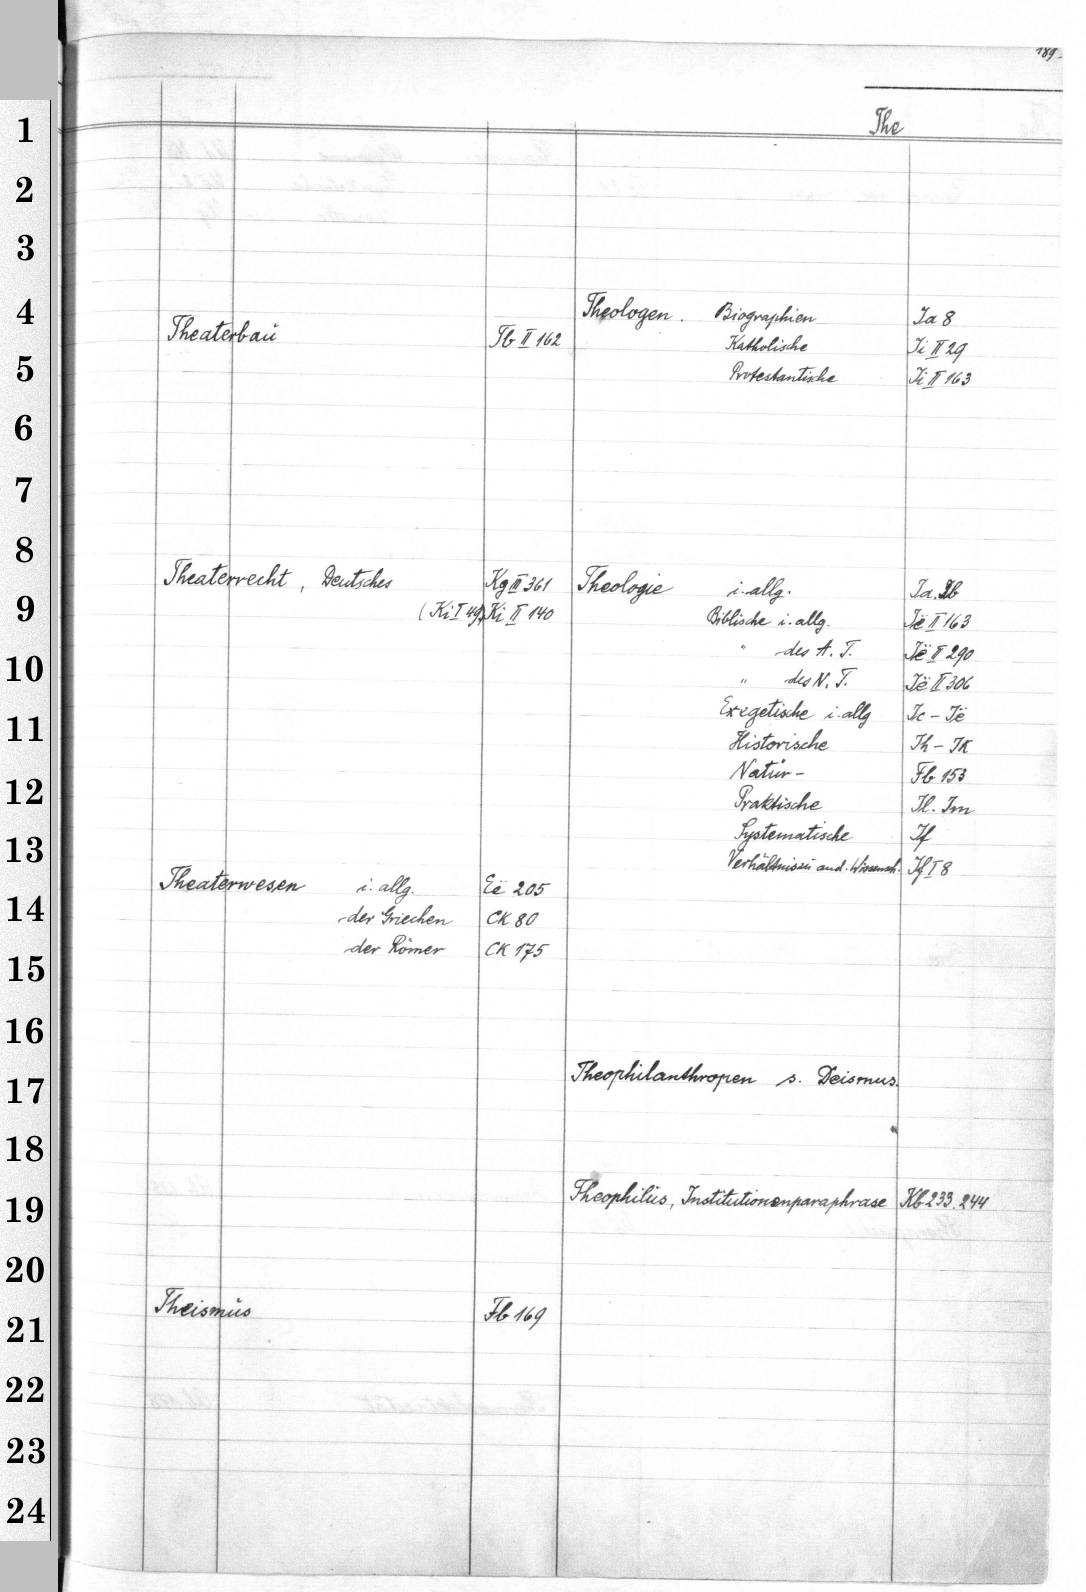 189.
The
1
2
3
4
5
6
7
8
9
10
11
12
13
14
15
16
17
18
19
20
21
22
23
24
Theaterbaŭ Tb II 162
Theaterrecht, Deutsches Kg II 361
(Ki I 49) Ki II 140
Theaterwesen i. allg. Eë 205
der Griechen CK 80
der Römer CK 175
Theismŭs Fb 169
Theologen. Biographien Ja 8
Katholische Ji II 29
Protestantische Ji II 163
Theologie i. allg. Ja. Jb
Biblische i. allg. Jë II 163
" des A. T. Jë II 290
" des N. T. Jë II 306
Exegetische i. allg Jc – Jë
Historische Jh – JK
Natŭr- Fb 153
Praktische Jl. Jm
Systematische Jf
Verhältnis zŭ and. Wissensch. Jf I 8
Theophilanthropen s. Deismus.
Theophilŭs, Institutionenparaphrase Kb 233. 244